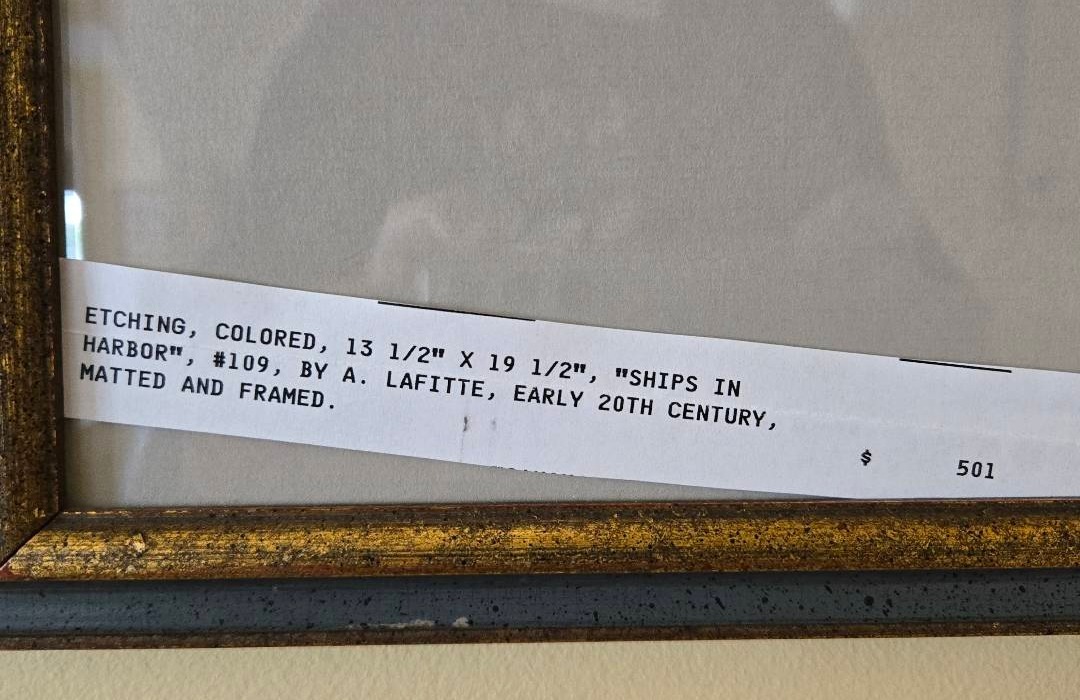 ETCHING, COLORED, 13 1/2" X 19 1/2", "SHIPS IN
HARBOR", #109, BY A. LAFITTE, EARLY 20TH CENTURY,
MATTED AND FRAMED.
$ 501